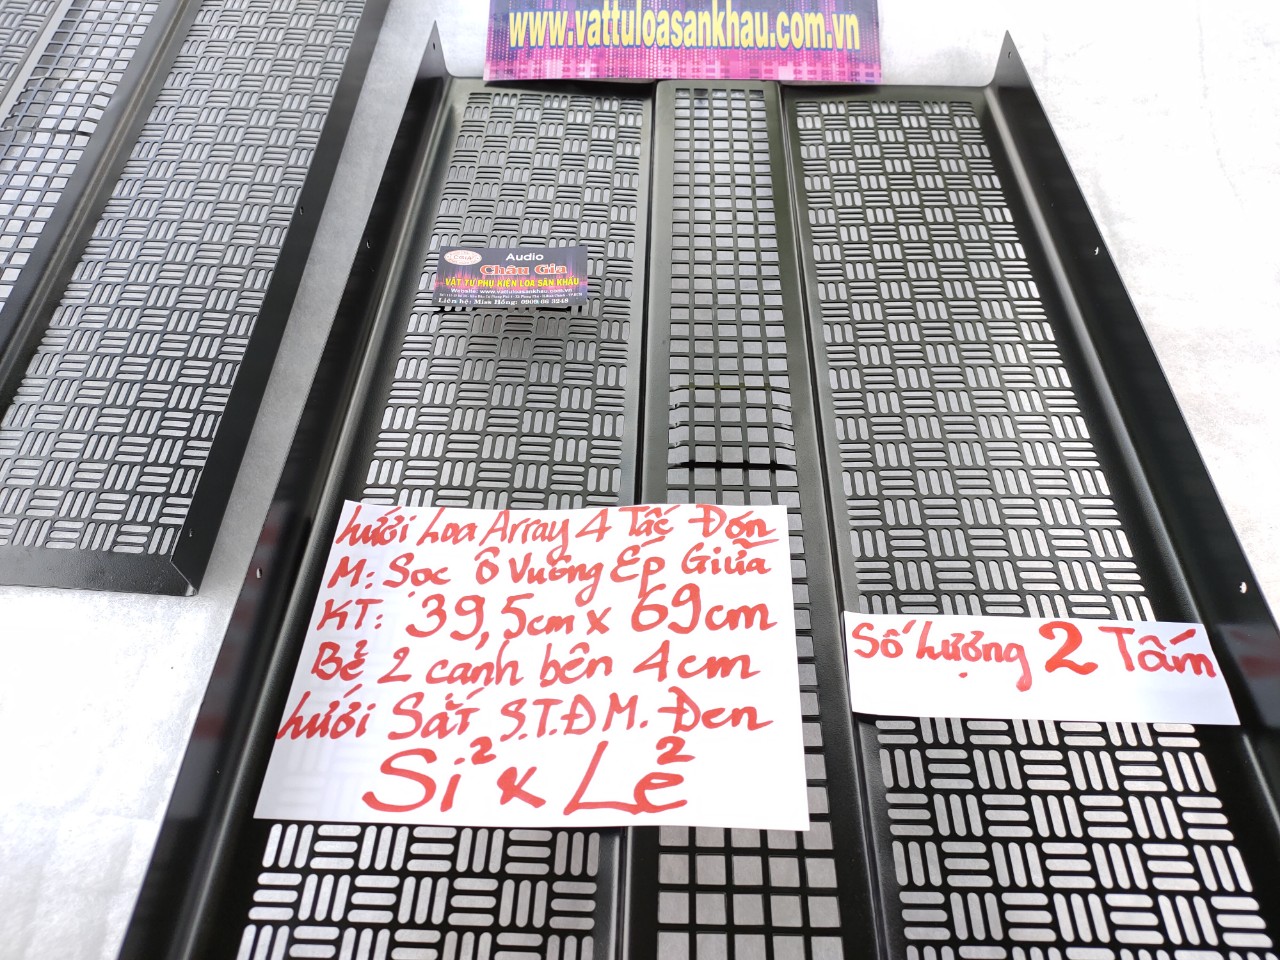 www.vattuloasankhau.com.vn
Audio
Châu Gia
VẬT TƯ PHỤ KIỆN LOA SÂN KHẤU
Website: www.vattuloasankhau.com.vn
Liên hệ: Miss Hồng: 0909 06 3248
Lưới Loa Array 4 Tấc Đơn
M: Sọc Ô Vuông Ép Giữa
KT: 39,5cm x 69cm
Bẻ 2 cạnh bên 4cm
Lưới Sắt S.T.Đ M. Đen
Si² & Lẻ²
Số Lượng 2 Tấm